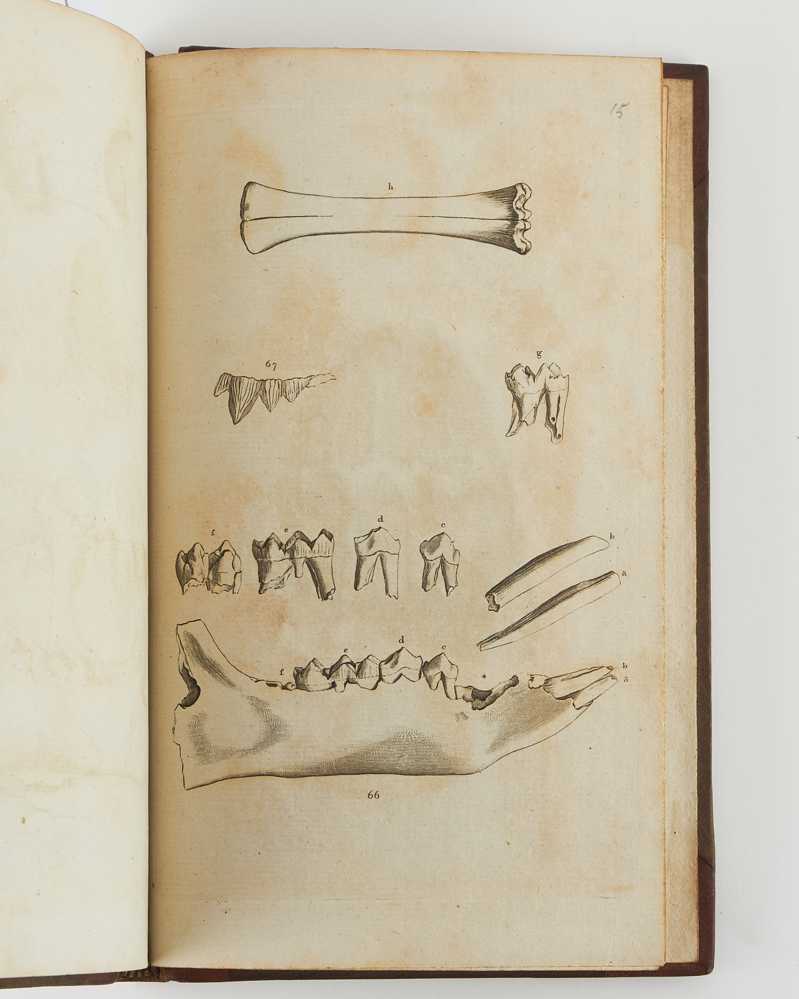 15
h
67
g
f e d c
b
a
f e d c * b
a
66